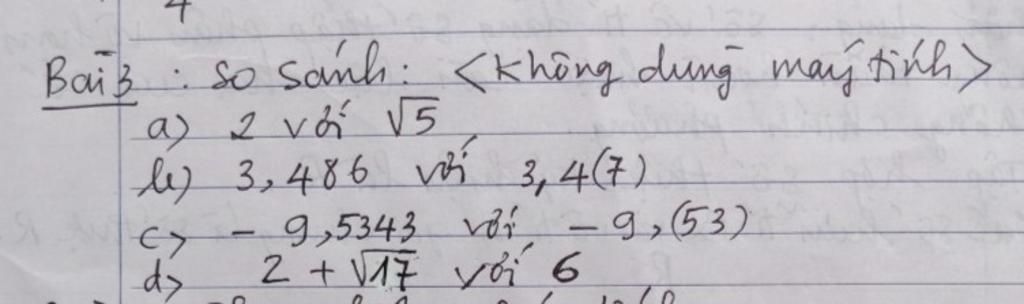 4
Bài 3 : so sánh: <không dùng máy tính>
a) 2 với √5
b) 3,486 với 3,4(7)
c) - 9,5343 với - 9,(53)
d) 2 + √17 với 6